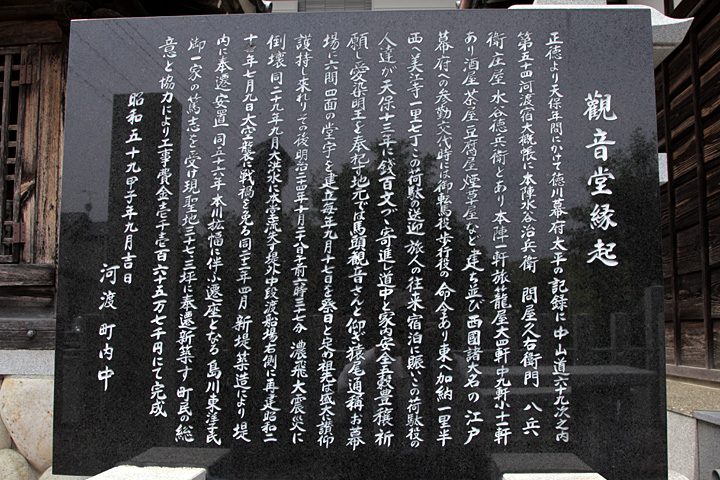 觀音堂縁起
正徳より天保年間にかけて徳川幕府太平の記録に中山道六十九次之内
第五十四河渡宿大概帳に本陣水谷治兵衛 問屋久右衛門 八兵
衛庄屋水谷徳兵衛とあり本陣一軒旅籠屋大四軒中九軒小十一軒
あり酒屋茶屋豆腐屋煙草屋など建ち並び西國諸大名の江戸
幕府への参勤交代時には御転馬役歩行役の命令あり東へ加納一里半
西へ美江寺一里七丁この荷駄の送迎旅人の往来宿泊に賑いこの荷駄役の
人達が天保十三年に銭百文づゝ寄進し道中と家内安全五穀豊穣祈
願し愛染明王を奉祀す地元では馬頭観音さんと仰ぎ猿尾通稱お幕
場に六間四面の堂宇を建立毎年九月十七日を祭日と定め祖先は盛大に讃仰
護持し来れりその後明治二十四年十月二十八日午前六時三十七分 濃飛大震災に
倒壊同二十九年九月大洪水に本堂流失す堤外中段渡船場右側に再建昭和二
十年七月九日大空襲に戦禍を免る同二十三年四月 新堤築造により堤
内に奉遷安置同五十六年本川拡幅に伴ふ遷座となる 鳥川東洋氏
御一家の篤志を受け現聖地三十七・三坪に奉遷新築す 町民の総
意と協力により工事費金壱千壱百六十五万七千円にて完成
昭和五十九甲子年九月吉日
河渡町内中